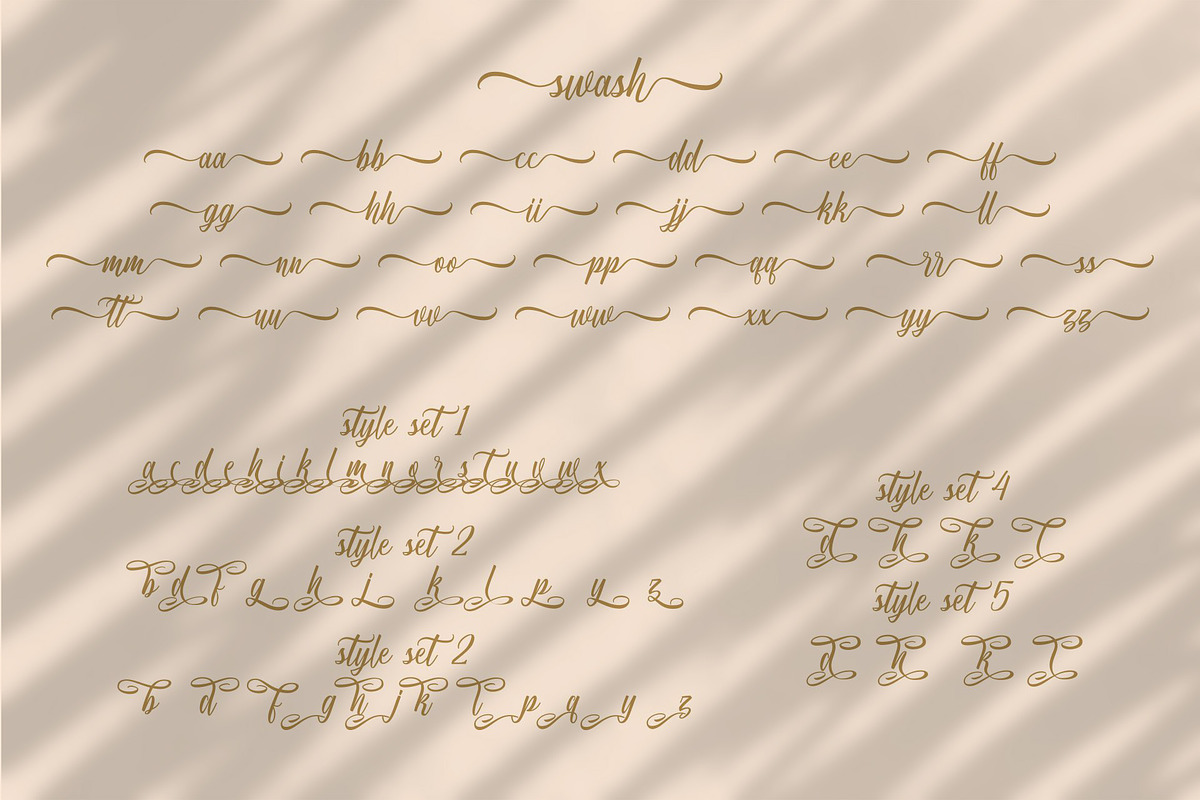 swash
aa bb cc dd ee ff
gg hh ii jj kk ll
mm nn oo pp qq rr ss
tt uu vv ww xx yy zz
style set 1
a c d e h i k l m n o r s t u v w x
style set 2
b d f g h j k l p y z
style set 2
b d f g h j k l p q y z
style set 4
d h k l
style set 5
d h k l